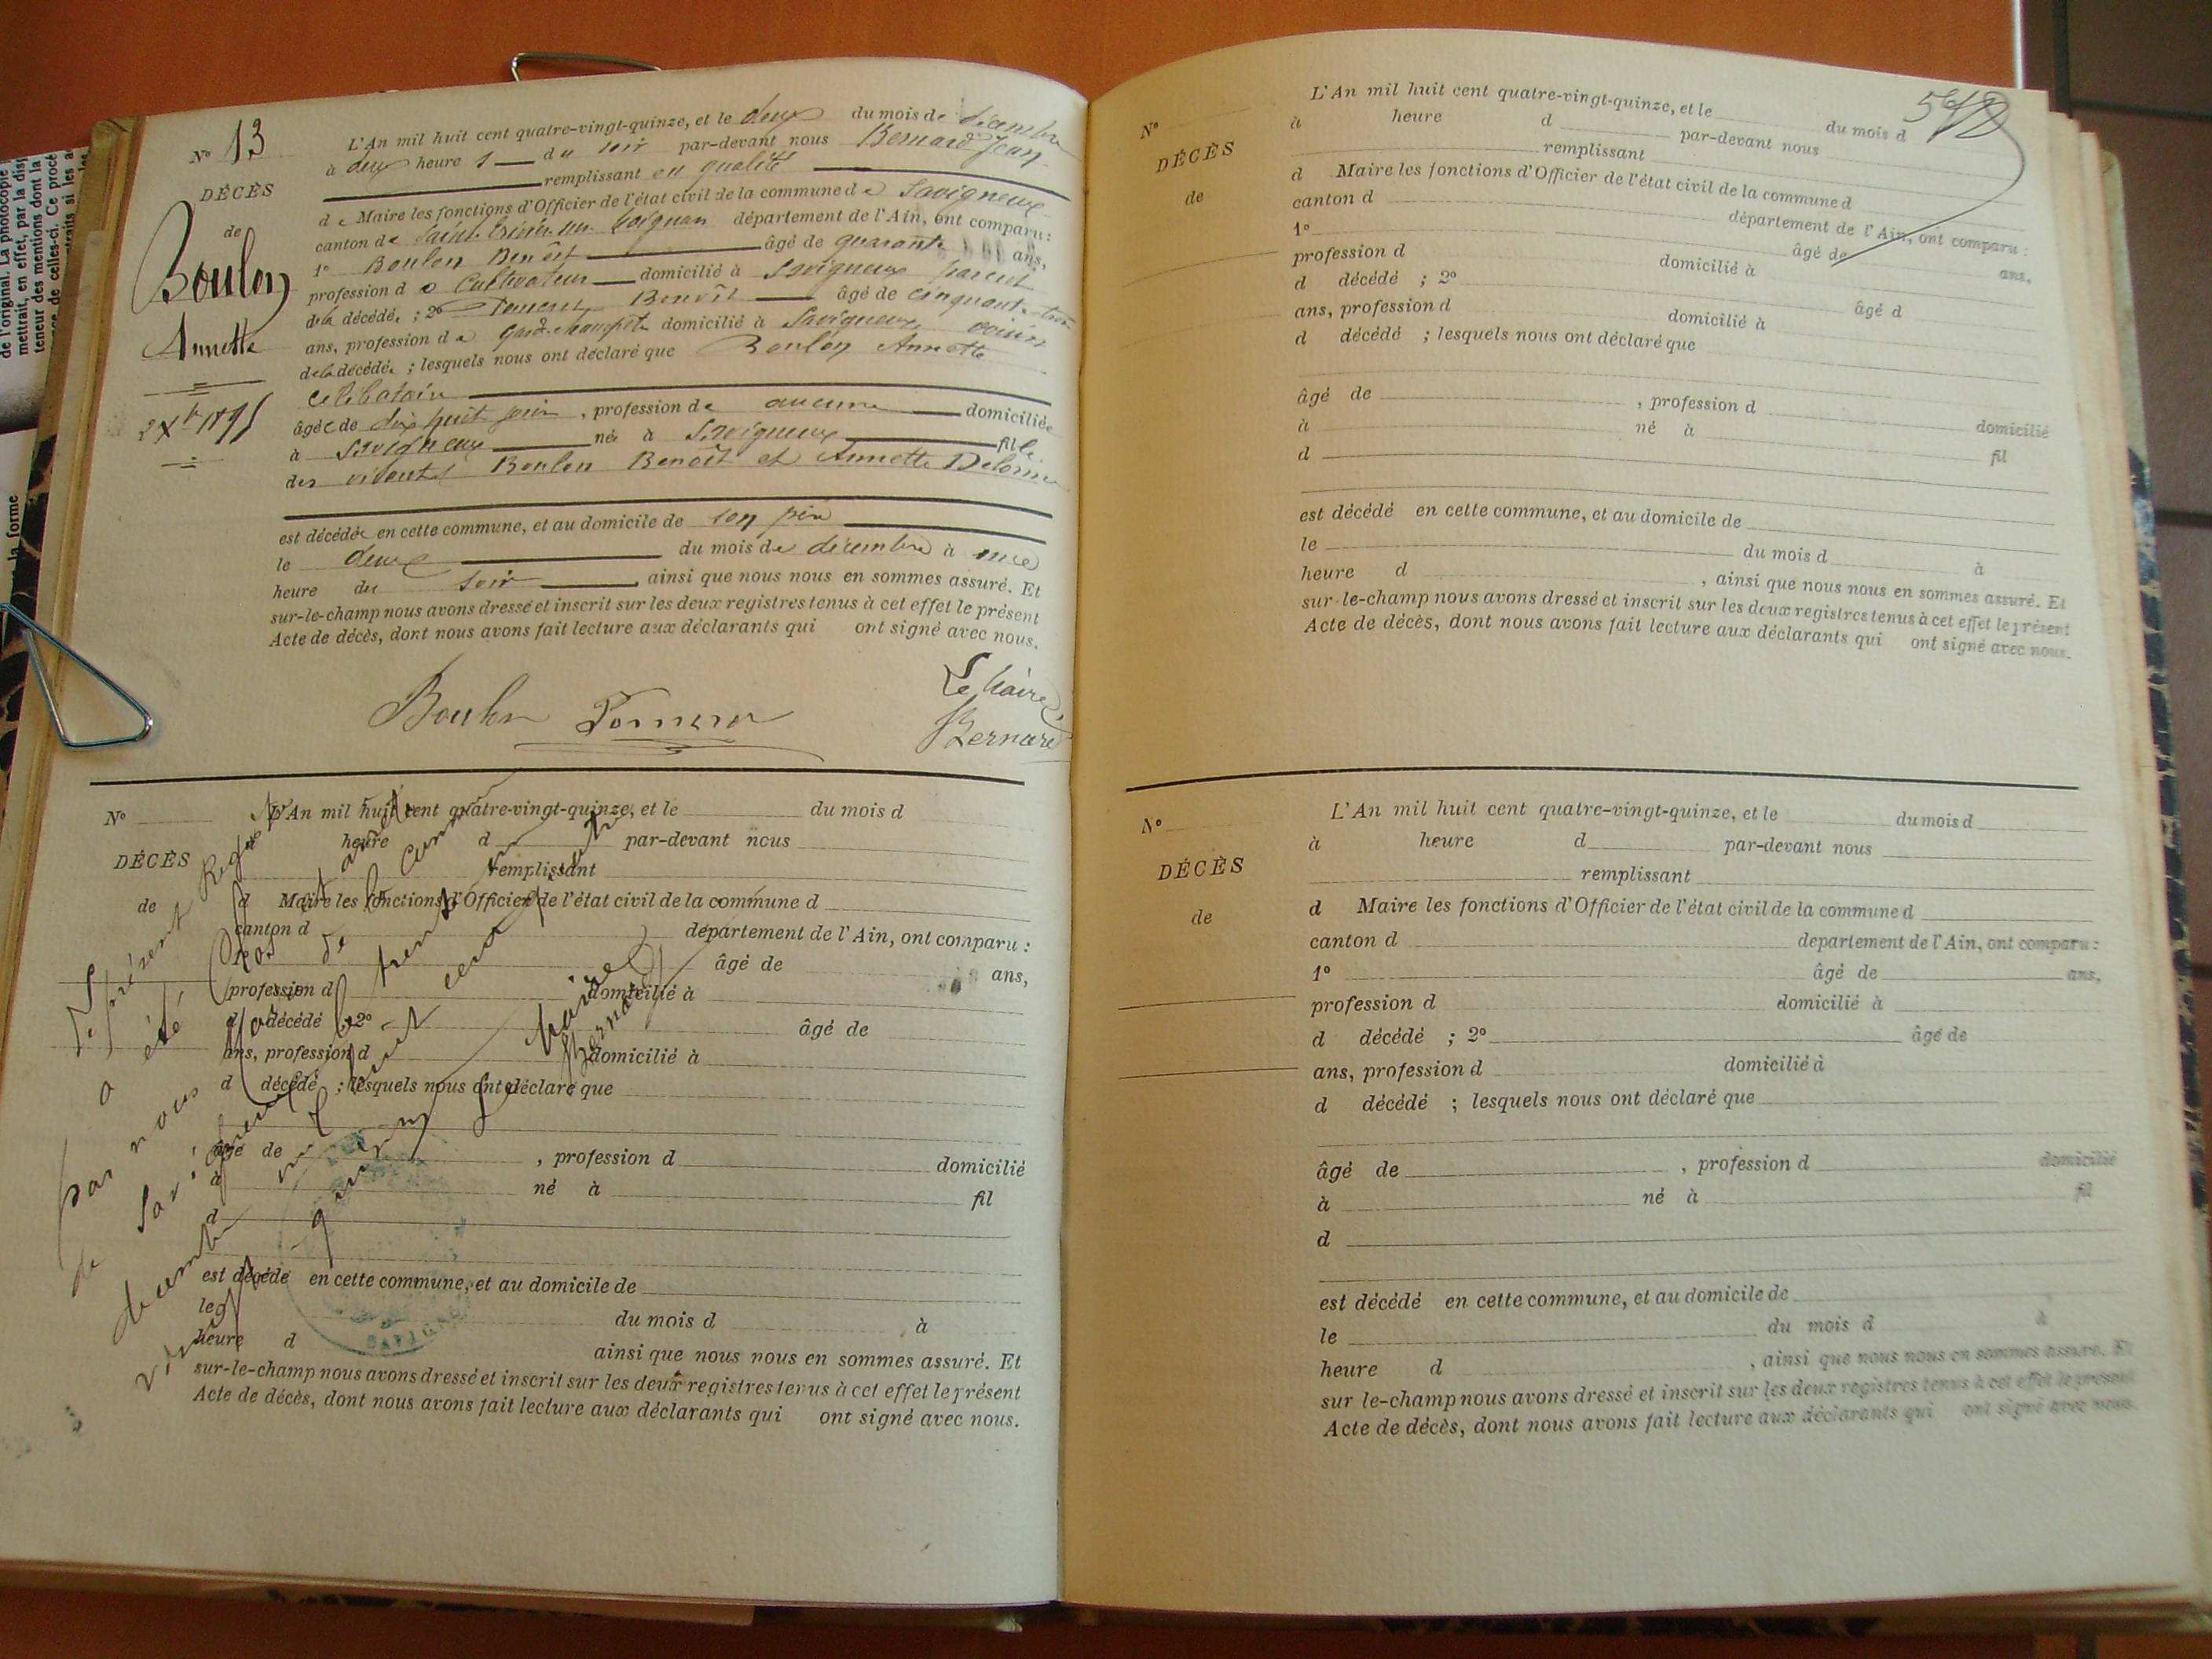 de l'original. La photocopie
mettrait, en effet, par la
teneur des mentions dont la
si les
de celles-ci. Ce procé
la forme
N° 13
DÉCÈS
de
Boulon
Annette
2 Xbre 1895
L'An mil huit cent quatre-vingt-quinze, et le deux du mois de décembre
à deux heures du soir par-devant nous Bernard Jean
remplissant en qualité
de Maire les fonctions d'Officier de l'état civil de la commune de Savigneux
canton de Saint-Trivier-sur-Moignans département de l'Ain, ont comparu:
1° Boulon Benoît âgé de quarante ans,
profession de Cultivateur domicilié à Savigneux parent
de la décédée ; 2° Benoît âgé de cinquante-trois
ans, profession de garde-champêtre domicilié à Savigneux voisin
de la décédée ; lesquels nous ont déclaré que Boulon Annette
célibataire
âgée de dix huit jours, profession de aucune domiciliée
à Savigneux née à Savigneux fille
des vivants Boulon Benoît et Annette Delorme
est décédée en cette commune, et au domicile de son père
le deux du mois de décembre à une
heure du soir, ainsi que nous nous en sommes assuré. Et
sur-le-champ nous avons dressé et inscrit sur les deux registres tenus à cet effet le présent
Acte de décès, dont nous avons fait lecture aux déclarants qui ont signé avec nous.
Boulon
Le Maire
Bernard
N°
DÉCÈS
de
L'An mil huit cent quatre-vingt-quinze, et le du mois d
à heure d par-devant nous
remplissant
d Maire les fonctions d'Officier de l'état civil de la commune d
canton d département de l'Ain, ont comparu :
1° âgé de ans,
profession d domicilié à
d décédé ; 2° âgé de
ans, profession d domicilié à
d décédé ; lesquels nous ont déclaré que
âgé de , profession d domicilié
à né à fil
d
est décédé en cette commune, et au domicile de
le du mois d à
heure d ainsi que nous nous en sommes assuré. Et
sur-le-champ nous avons dressé et inscrit sur les deux registres tenus à cet effet le présent
Acte de décès, dont nous avons fait lecture aux déclarants qui ont signé avec nous.
Le présent Registre
a été clos et arrêté
par nous Maire de la commune
de Savigneux le trente un
décembre mil huit cent quatre
vingt quinze
Le Maire
Bernard
SAVIGNEUX
N°
DÉCÈS
de
L'An mil huit cent quatre-vingt-quinze, et le du mois d
à heure d par-devant nous
remplissant
d Maire les fonctions d'Officier de l'état civil de la commune d
canton d département de l'Ain, ont comparu :
1° âgé de ans,
profession d domicilié à
d décédé ; 2° âgé d
ans, profession d domicilié à
d décédé ; lesquels nous ont déclaré que
âgé de , profession d domicilié
à né à fil
d
est décédé en cette commune, et au domicile de
le du mois d à
heure d , ainsi que nous nous en sommes assuré. Et
sur-le-champ nous avons dressé et inscrit sur les deux registres tenus à cet effet le présent
Acte de décès, dont nous avons fait lecture aux déclarants qui ont signé avec nous.
N°
DÉCÈS
de
L'An mil huit cent quatre-vingt-quinze, et le du mois d
à heure d par-devant nous
remplissant
d Maire les fonctions d'Officier de l'état civil de la commune d
canton d departement de l'Ain, ont comparu :
1° âgé de ans,
profession d domicilié à
d décédé ; 2° âgé de
ans, profession d domicilié à
d décédé ; lesquels nous ont déclaré que
âgé de , profession d domicilié
à né à fil
d
est décédé en cette commune, et au domicile de
le du mois d à
heure d , ainsi que nous nous en sommes assuré. Et
sur le-champ nous avons dressé et inscrit sur les deux registres tenus à cet effet le présent
Acte de décès, dont nous avons fait lecture aux déclarants qui ont signé avec nous.